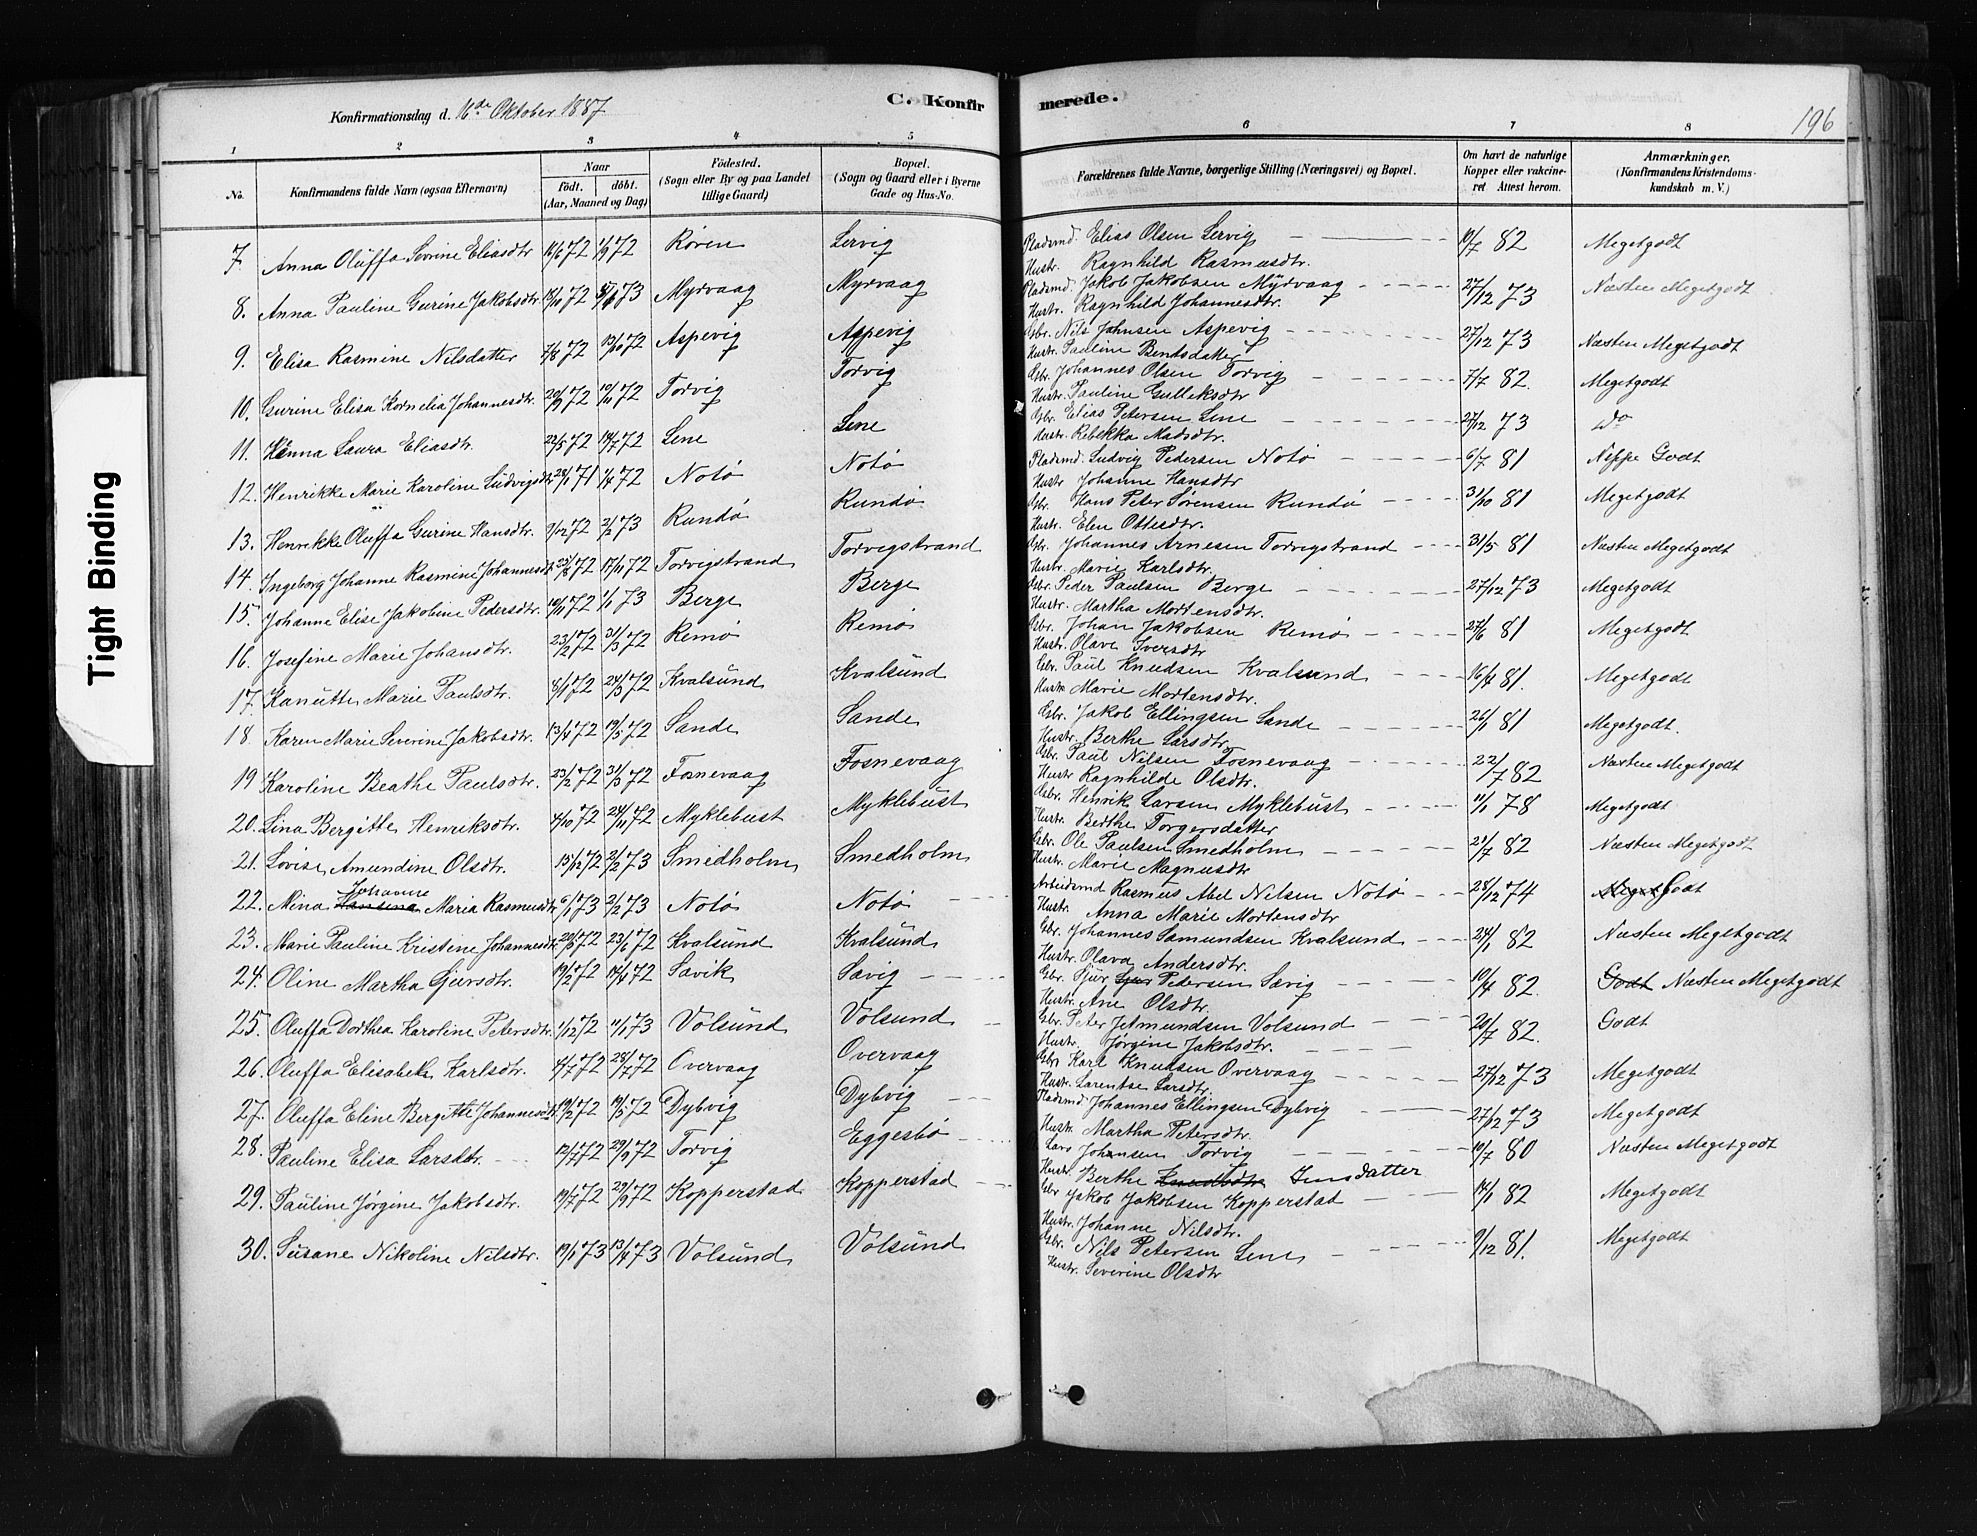 Konfirmationsdag d. 16de Oktober 1887.
C. Konfirmerede.
196
1 2 3 4 5 6 7 8
No.
Konfirmandens fulde Navn (ogsaa Efternavn)
Naar
födt. döbt.
(Aar, Maaned og Dag)
Födested.
(Sogn eller By og paa Landet tillige Gaard)
Bopæl.
(Sogn og Gaard eller i Byerne Gade og Hus-No.
Forældrenes fulde Navne, borgerlige Stilling (Næringsvei) og Bopæl.
Om havt de naturlige Kopper eller vakcineret Attest herom.
Anmærkninger.
(Konfirmandens Kristendomskundskab m. V.)
7. Anna Oluffa Sevrine Eliasdtr. 16/6 72 1/9 72 Røren Lervig Pladsmd. Elias Olsen Lervig 10/7 82 Megetgodt
Hustr. Ragnhild Rasmusdtr.
8. Anna Pauline Gurine Jakobsdtr. 72 73 Myrvaag Myrvaag Pladsmd. Jakob Jakobsen Myrvaag 27/12 73 Næsten Megetgodt
Hustr. Ragnhild Johannesdtr.
9. Elisa Rasmine Nilsdatter 7/8 72 13/10 72 Aspevig Aspevig Gbr. Nils Johnsen Aspevig 27/12 73 Næsten Megetgodt
Hustr. Pauline Bentsdatter
10. Gurine Elisa Kornelia Johannesdtr. 20/9 72 10/11 72 Torvig Torvig Gbr. Johannes Olsen Torvig 7/7 82. Megetgodt
Hustr. Pauline Gulleksdtr
11. Hanna Laura Eliasdtr. 22/5 72 14/7 72 Lene Lene Gbr. Elias Petersen Lene 27/12 73 do
Hustr. Rebekka Madsdtr.
12. Henrikke Marie Karoline Ludvigsdtr 28/1 71 1/4 72 Notø Notø Pladsmd. Ludvig Pedersen Notø 6/7 81 Neppe Godt
Hustr Johanne Hansdtr
13. Henrikke Oluffa Gurine Hansdtr. 9/12 72 2/2 73 Rundø Rundø Gbr. Hans Peter Sørensen Rundø 31/10 81 Megetgodt
Hustr. Elen Ottesdtr.
14. Ingeborg Johanne Rasmine Johannesdtr 25/8 72 17/11 72 Torvigstrand Torvigstrand Gbr. Johannes Arnesen Torvigstrand 31/5 81 Næsten Megetgodt
Hustr. Marie Karlsdtr.
15. Johanne Elise Jakobine Pedersdtr. 10/11 72 1/1 73 Berge Berge Gbr. Peder Paulsen Berge 27/12 73 Megetgodt
Hustr. Martha Mortensdtr.
16. Josefine Marie Johansdtr. 23/2 72 31/3 72 Remø Remø Gbr. Johan Jakobsen Remø 27/6 81 Megetgodt
Hustr. Olave Iversdtr
17. Kanutte Marie Paulsdtr. 6/1 72 24/3 72 Kvalsund Kvalsund Gbr. Paul Knudsen Kvalsund 16/4 81. Megetgodt
Hustr. Marie Mortensdtr.
18. Karen Marie Severine Jakobsdtr. 13/4 72 19/5 72 Sande Sande Gbr. Jakob Ellingsen Sande 26/1 81 Megetgodt.
Hustr. Berthe Larsdtr.
19 Karoline Beathe Paulsdtr. 23/2 72 31/3 72 Fosnevaag Fosnevaag Gbr. Paul Nilsen Fosnevaag 22/7 82 Næsten Megetgodt
Hustr Ragnhilde Olsdtr.
20. Lina Bergitte Henriksdtr. 4/10 72 24/11 72 Myklebust Myklebust Gbr. Henrik Larsen Myklebust 11/1 78 Megetgodt
Hustr. Berthe Torgersdatter
21. Lovise Amundine Olsdtr. 15/12 72 2/2 73 Smedholm Smedholm Gbr. Ole Paulsen Smedholm 21/7 82 Næsten Megetgodt
Hustr. Marie Magnusdtr
22. Mina Hansina Johanne Maria Rasmusdtr 6/1 73 2/2 73 Notø Notø Arbeidsmd Rasmus Abel Nilsen Notø 28/12 74 Meget Godt
Hustr. Anna Marie Mortensdtr
23. Marie Pauline Kristine Johannesdtr. 72 23/6 72 Kvalsund Kvalsund Gbr. Johannes Samundsen Kvalsund 24/1 82 Næsten Megetgodt
Hustr. Olava Andersdtr.
24. Oline Martha Gjursdtr. 19/2 72 14/4 72 Savik Savig Gbr. Gjur Petersen Sævig 10/4 82. Godt Næsten Megetgodt
Hustr. Ane Olsdtr.
25. Oluffa Dorthea Karoline Petersdtr. 1/12 72 11/1 73 Volsund Volsund Gbr. Peter Jetmundsen Volsund 20/7 82. Godt
Hustr. Jørgine Jakobsdtr.
26. Oluffa Elisabeth Karlsdtr. 4/7 72 28/7 72 Overvaag Overvaag Gbr Karl Knudsen Overvaag 27/12 73 Megetgodt
Hustr. Larentse Larsdtr.
27. Oluffa Eline Bergitte Johannesdtr 19/2 72 19/5 72 Dybvig Dybvig Pladsmd Johannes Ellingsen Dybvig 27/12 73 Megetgodt
Hustr. Martha Petersdtr.
28. Pauline Elisa Larsdtr. 12/7 72 29/9 72 Torvig Eggesbø Lars Johansen Torvig 10/7 80 Næsten Megetgodt
Hustr. Berthe Knudsdtr Jensdatter
29. Pauline Jørgine Jakobsdtr. 19/7 72 29/9 72 Kopperstad Kopperstad Gbr Jakob Jakobsen Kopperstad 14/1 82 Megetgodt
Hustr. Johanne Nilsdtr.
30. Susane Nikoline Nilsdtr. 19/1 73 13/4 73 Volsund Volsund Gbr. Nils Petersen Lene 9/12 81. Megetgodt
Hustr. Severine Olsdtr
Tight Binding